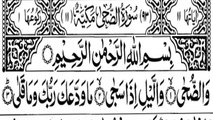 اٰيَاتُهَا ١١ (٩٣) سُوْرَةُ الضُّحٰى مَكِّيَّةٌ (١١) رُكُوْعُهَا ١
بِسْمِ اللّٰهِ الرَّحْمٰنِ الرَّحِيْمِ
وَالضُّحٰى وَالَّيْلِ اِذَا سَجٰى مَا وَدَّعَكَ رَبُّكَ وَمَا قَلٰى